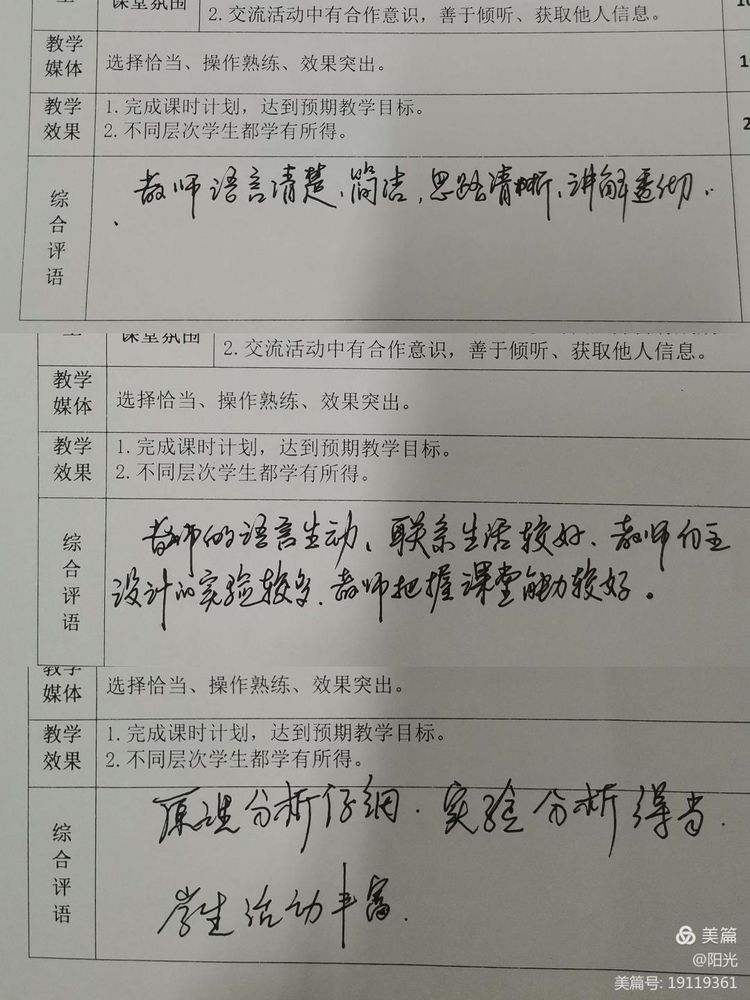 课堂氛围
2.交流活动中有合作意识，善于倾听、获取他人信息。
教学
媒体
选择恰当、操作熟练、效果突出。
教学
效果
1.完成课时计划，达到预期教学目标。
2.不同层次学生都学有所得。
综合评语
教师语言清楚、简洁，思路清晰、讲解透彻.
课堂氛围
2.交流活动中有合作意识，善于倾听、获取他人信息。
教学
媒体
选择恰当、操作熟练、效果突出。
教学
效果
1.完成课时计划，达到预期教学目标。
2.不同层次学生都学有所得。
综合评语
教师的语言生动、联系生活较好、教师自主
设计的实验较多、教师把握课堂能力较好。
教学
媒体
选择恰当、操作熟练、效果突出。
教学
效果
1.完成课时计划，达到预期教学目标。
2.不同层次学生都学有所得。
综合评语
原理分析仔细.实验分析得当.
学生活动丰富.
美篇
@阳光
美篇号: 19119361